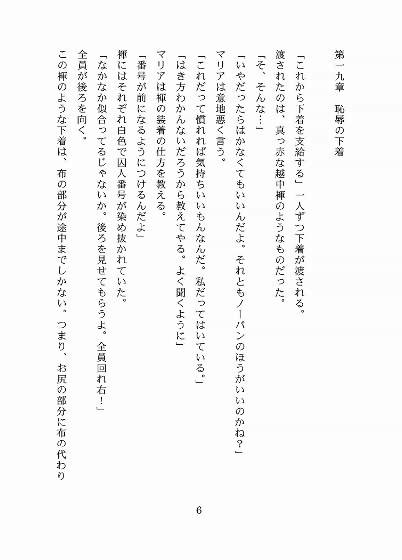 第一九章　恥辱の下着
「これから下着を支給する」一人ずつ下着が渡される。
渡されたのは、真っ赤な越中褌のようなものだった。
「そ、そんな…」
「いやだったらはかなくてもいいんだよ。それともノーパンのほうがいいのかね？」
マリアは意地悪く言う。
「これだって慣れれば気持ちいいもんなんだ。私だってはいている。」
「はき方わかんないだろうから教えてやる。よく聞くように」
マリアは褌の装着の仕方を教える。
「番号が前になるようにつけるんだよ」
褌にはそれぞれ白色で囚人番号が染め抜かれていた。
「なかなか似合ってるじゃないか。後ろを見せてもらうよ。全員回れ右！」
全員が後ろを向く。
この褌のような下着は、布の部分が途中までしかない。つまり、お尻の部分に布の代わり
6